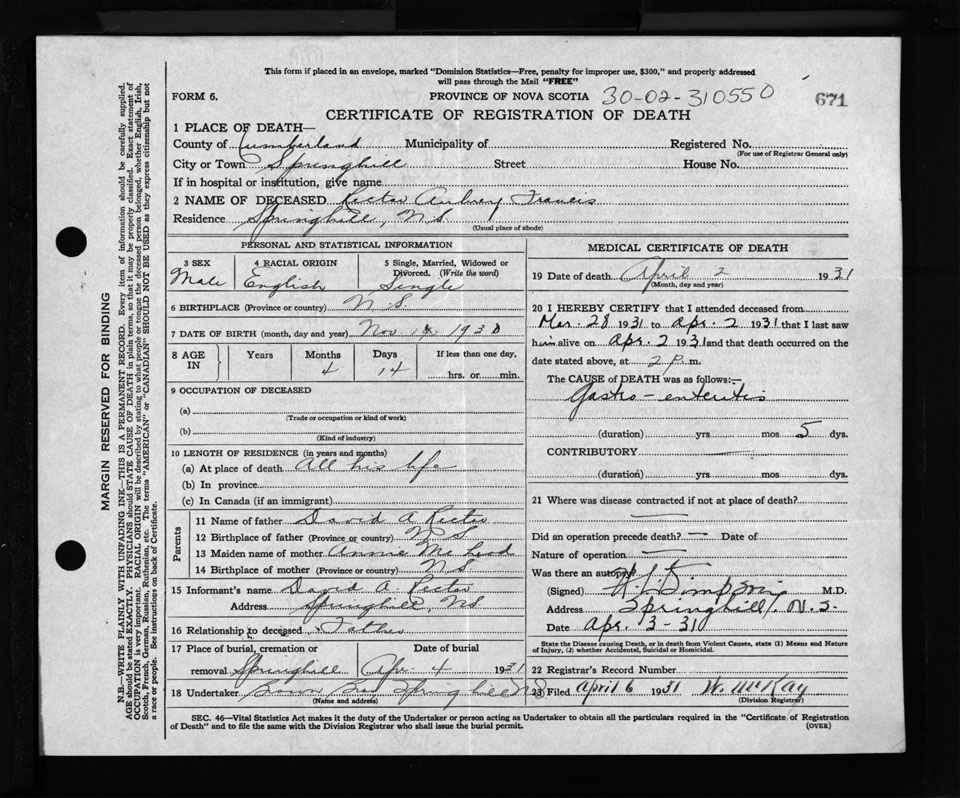 This form if placed in an envelope, marked "Dominion Statistics—Free, penalty for improper use, $300," and properly addressed
will pass through the Mail "FREE"
FORM 6. PROVINCE OF NOVA SCOTIA 30-02-310550 671
CERTIFICATE OF REGISTRATION OF DEATH
1 PLACE OF DEATH—
County of Cumberland Municipality of Registered No.
(For use of Registrar General only)
City or Town Springhill Street House No.
If in hospital or institution, give name
2 NAME OF DECEASED Rector Aubrey Francis
Residence Springhill, N.S.
(Usual place of abode)
PERSONAL AND STATISTICAL INFORMATION
3 SEX 4 RACIAL ORIGIN 5 Single, Married, Widowed or Divorced. (Write the word)
Male English Single
6 BIRTHPLACE (Province or country) N.S.
7 DATE OF BIRTH (month, day and year) Nov 1930
8 AGE IN Years Months Days If less than one day,
4 14 hrs. or min.
9 OCCUPATION OF DECEASED
(a)
(Trade or occupation or kind of work)
(b)
(Kind of industry)
10 LENGTH OF RESIDENCE (in years and months)
(a) At place of death All his life
(b) In province
(c) In Canada (if an immigrant)
Parents
11 Name of father David A Rector
12 Birthplace of father (Province or country) N S
13 Maiden name of mother Annie Mc Leod
14 Birthplace of mother (Province or country) N S
15 Informant's name David A. Rector
Address Springhill, N.S.
16 Relationship to deceased Father
17 Place of burial, cremation or removal Date of burial
Springhill Apr. 4 1931
18 Undertaker Brown Bros Springhill N S
(Name and address)
MEDICAL CERTIFICATE OF DEATH
19 Date of death April 2 1931
(Month, day and year)
20 I HEREBY CERTIFY that I attended deceased from
Mar. 28 1931 to Apr. 2 1931 that I last saw
him alive on Apr. 2 1931 and that death occurred on the
date stated above, at 2 p. m.
The CAUSE of DEATH was as follows:—
Gastro-enteritis
(duration) yrs. mos 5 dys.
CONTRIBUTORY —
(duration) yrs. mos dys.
21 Where was disease contracted if not at place of death?
—
Did an operation precede death? — Date of
Nature of operation —
Was there an autopsy
(Signed) H. L. Simpson M.D.
Address Springhill, N.S.
Date Apr. 3-31
State the Disease causing Death, or in death from Violent Causes, state (1) Means and Nature
of Injury, (2) whether Accidental, Suicidal or Homicidal.
22 Registrar's Record Number
23 Filed April 6 1931 W. McKay
(Division Registrar)
SEC. 46—Vital Statistics Act makes it the duty of the Undertaker or person acting as Undertaker to obtain all the particulars required in the "Certificate of Registration
of Death" and to file the same with the Division Registrar who shall issue the burial permit. (OVER)
MARGIN RESERVED FOR BINDING
N.B.—WRITE PLAINLY WITH UNFADING INK—THIS IS A PERMANENT RECORD. Every item of information should be carefully supplied.
AGE should be stated EXACTLY. PHYSICIANS should STATE CAUSE OF DEATH in plain terms, so that it may be properly classified. Exact statement of
OCCUPATION is very important. RACIAL ORIGIN will be described by stating to what people or tongue the deceased person belonged, whether English, Irish,
Scotch, French, German, Russian, Ruthenian, etc. The terms "AMERICAN" or "CANADIAN" SHOULD NOT BE USED as they express citizenship but not
a race or people. See instructions on back of Certificate.